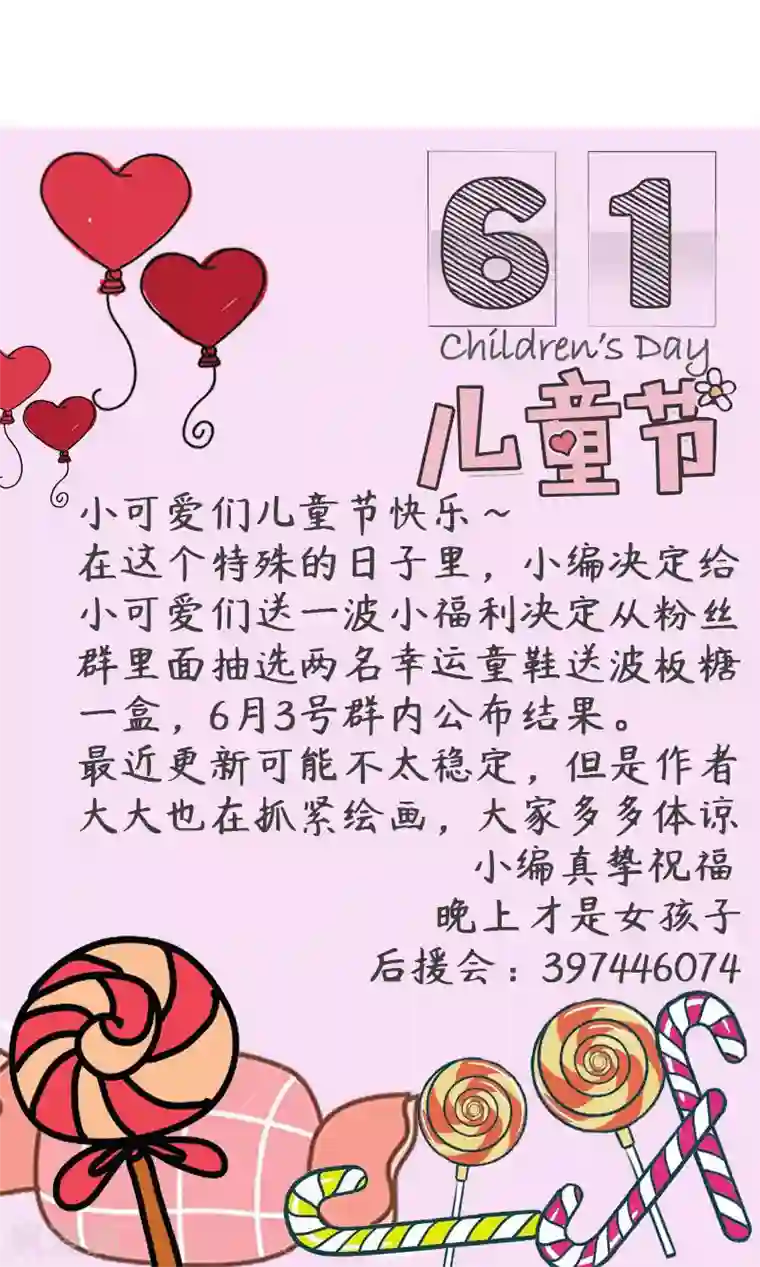 61
Children's Day
儿童节
小可爱们儿童节快乐～
在这个特殊的日子里，小编决定给
小可爱们送一波小福利决定从粉丝
群里面抽选两名幸运童鞋送波板糖
一盒，6月3号群内公布结果。
最近更新可能不太稳定，但是作者
大大也在抓紧绘画，大家多多体谅
小编真挚祝福
晚上才是女孩子
后援会：397446074